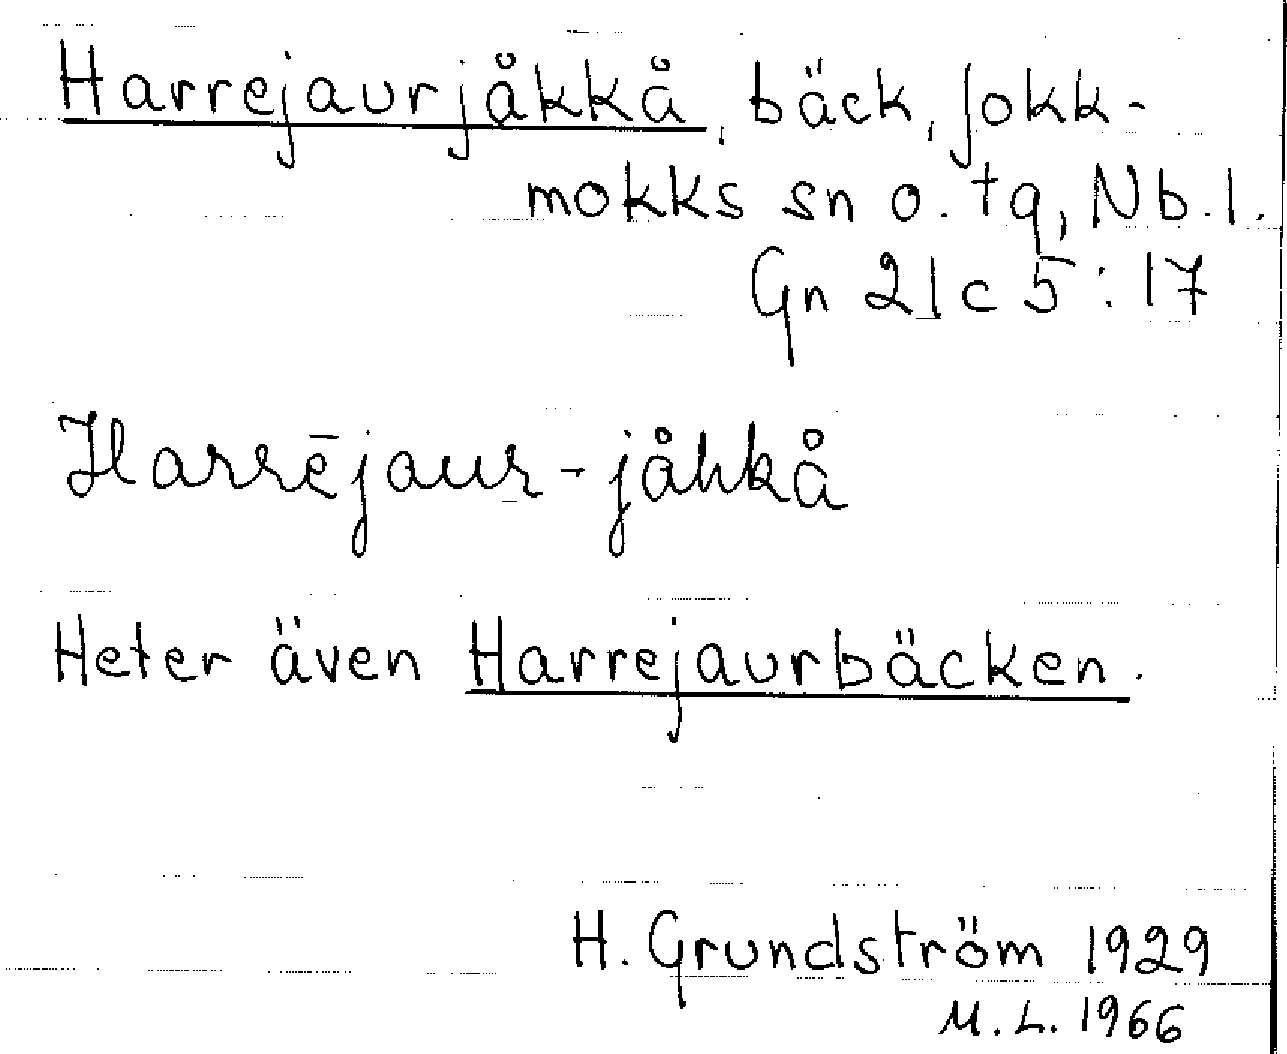 Harrejaurjåkkå, bäck, Jokk-
mokks sn o. tg, Nb.l.
Gn 21c 5:17
Harrējaur-jåhkå
Heter även Harrejaurbäcken.
H. Grundström 1929
M.L. 1966